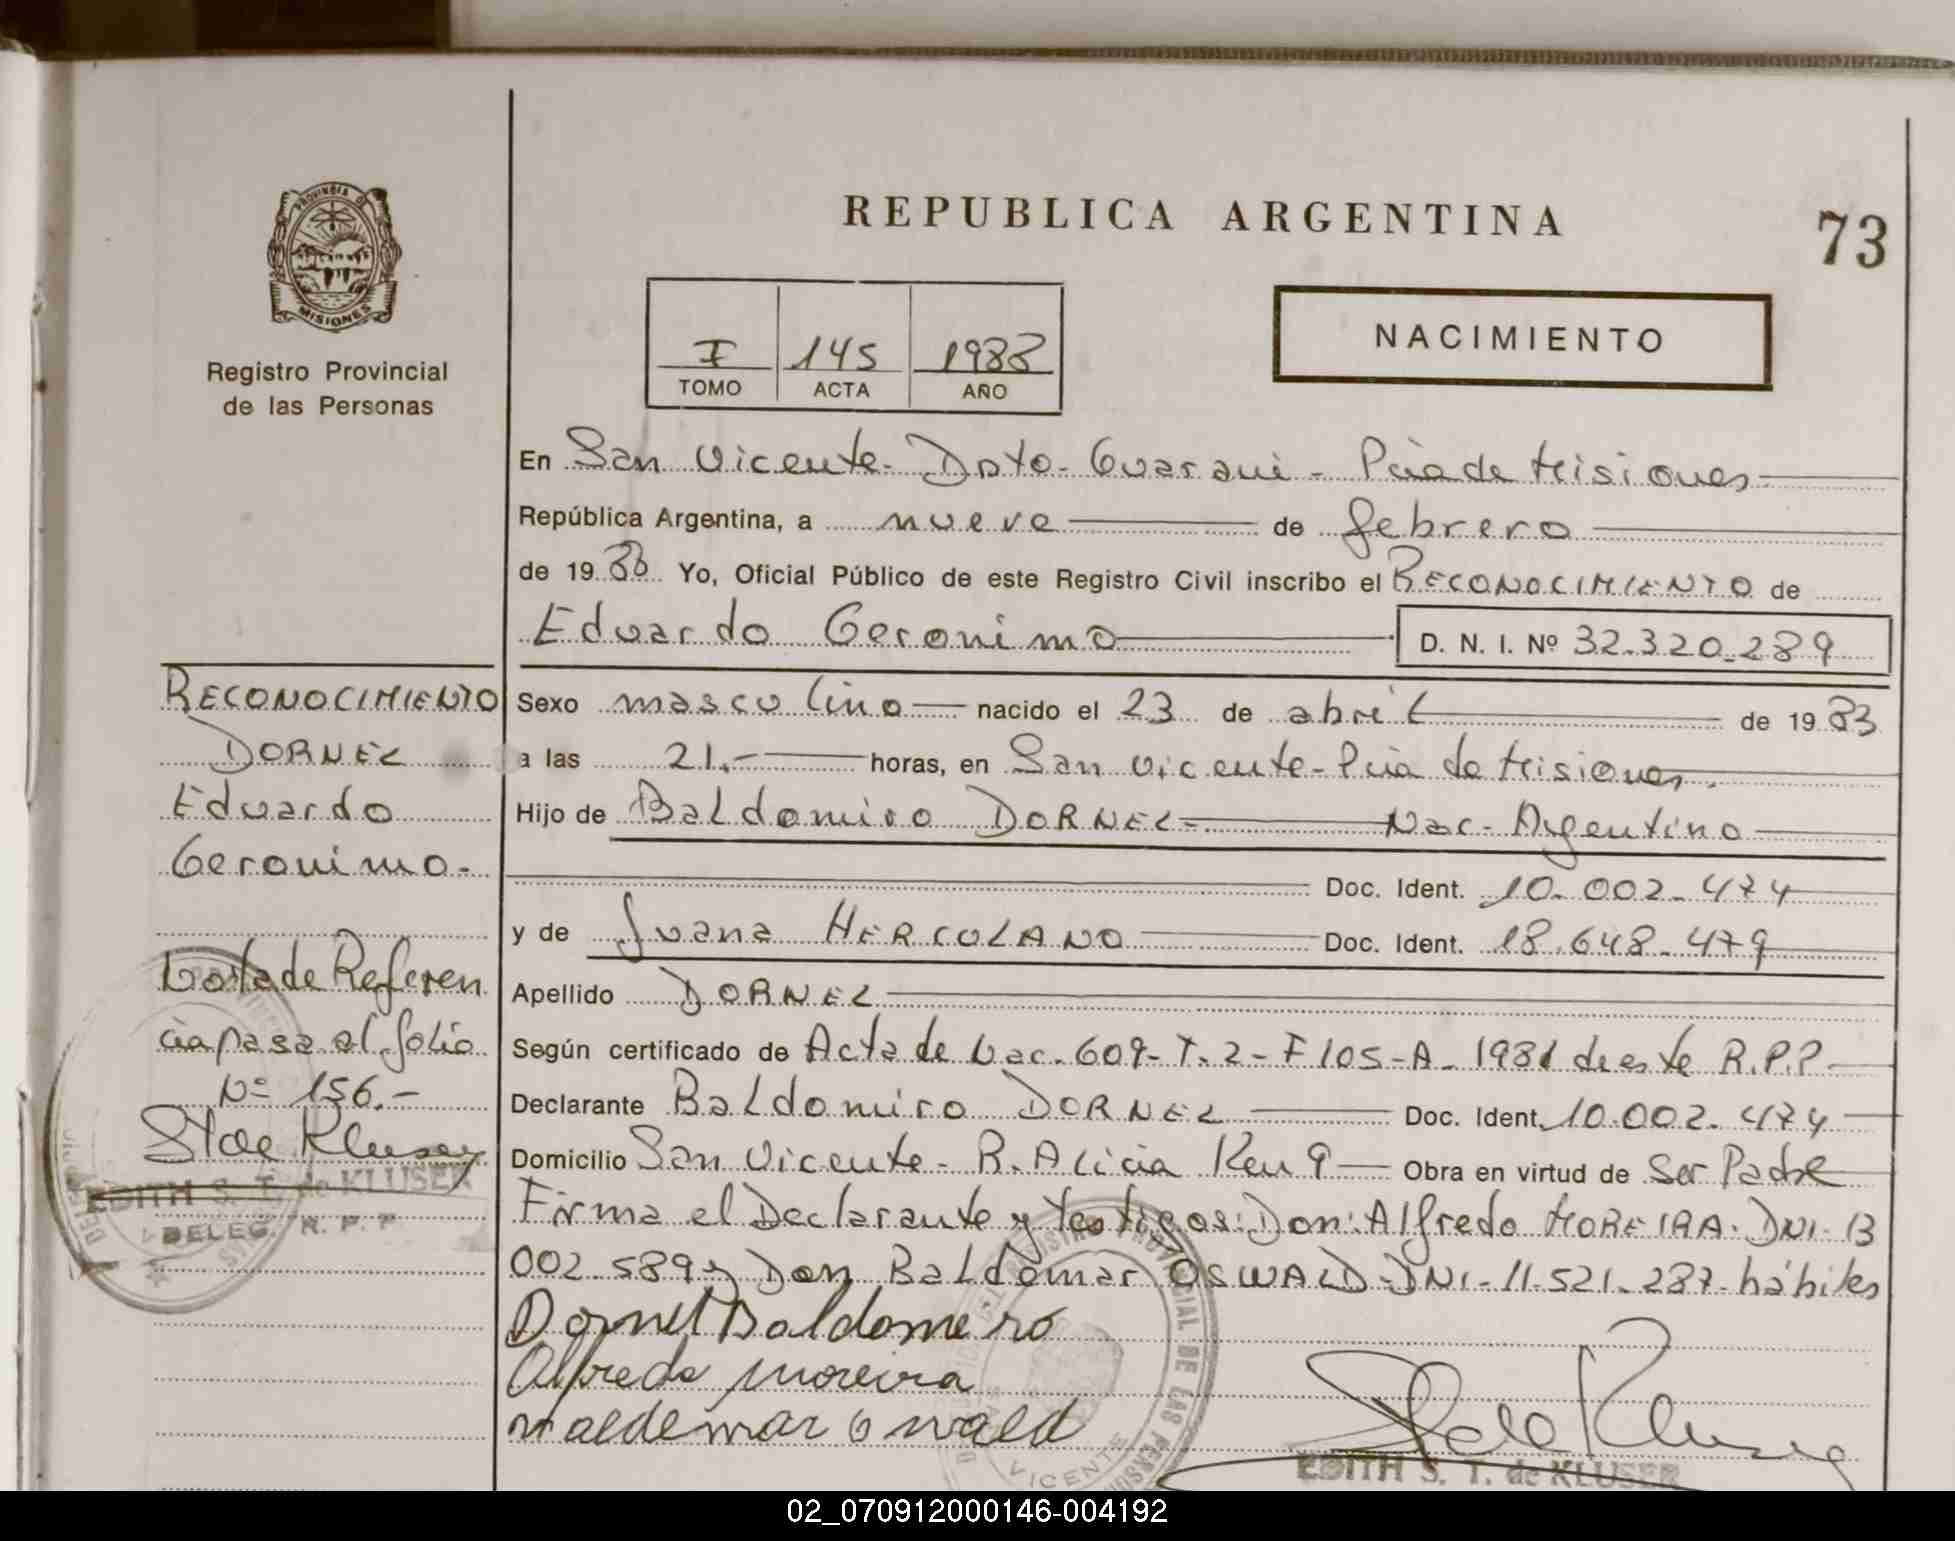 REPUBLICA ARGENTINA
73
PROVINCIA DE
MISIONES
Registro Provincial
de las Personas
I 145 1988
TOMO ACTA AÑO
NACIMIENTO
En San Vicente- Dpto- Guarani - Pcia de Misiones
República Argentina, a nueve de febrero
de 1988 Yo, Oficial Público de este Registro Civil inscribo el RECONOCIMIENTO de
Eduardo Geronimo D. N. I. Nº 32.320.289
Sexo masculino nacido el 23 de abril de 1983
a las 21.- horas, en San Vicente- Pcia de Misiones.
Hijo de Baldomiro DORNEL- Nac- Argentino
Doc. Ident. 10.002.474
y de Juana HERCOLANO Doc. Ident. 18.648.479
Apellido DORNEL
Según certificado de Acta de Nac. 609- T. 2- F 105- A- de este R.P.P.
Declarante Baldomiro DORNEL Doc. Ident. 10.002.474
Domicilio San Vicente- R. Alicia Obra en virtud de Ser Padre
Firma el Declarante y testigos: Don: Alfredo MOREIRA. DNI- 13
002.589 y Don Baldomar OSWALD- DNI- 11.521.287- hábiles
Dornel Baldomero
Alfredo moreira
waldemar oswald
EDITH S. T. de KLUSER
RECONOCIMIENTO
DORNEL
Eduardo
Geronimo-
Nota de Referen
cia pasa al folio
Nº 156.-
EDITH S. T. de KLUSER
DELEG. R. P. P
02_070912000146-004192